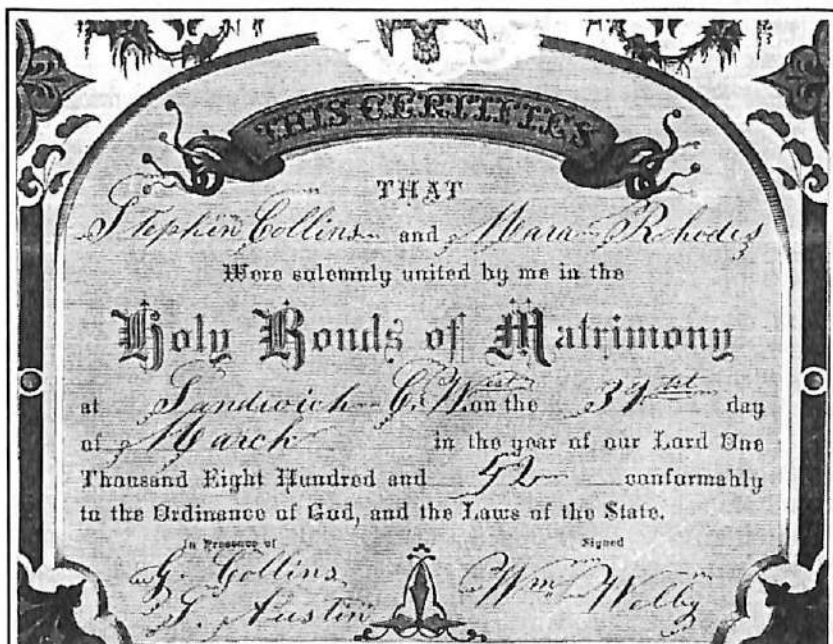 THIS CERTIFIES
THAT
Stephen Collins and Mara Rhodes
Were solemnly united by me in the
Holy Bonds of Matrimony
at Sandwich C. West on the 31st day
of March in the year of our Lord One
Thousand Eight Hundred and 52 conformably
to the Ordinance of God, and the Laws of the State.
In Presence of Signed
G. Collins Wm Welby
T. Austin